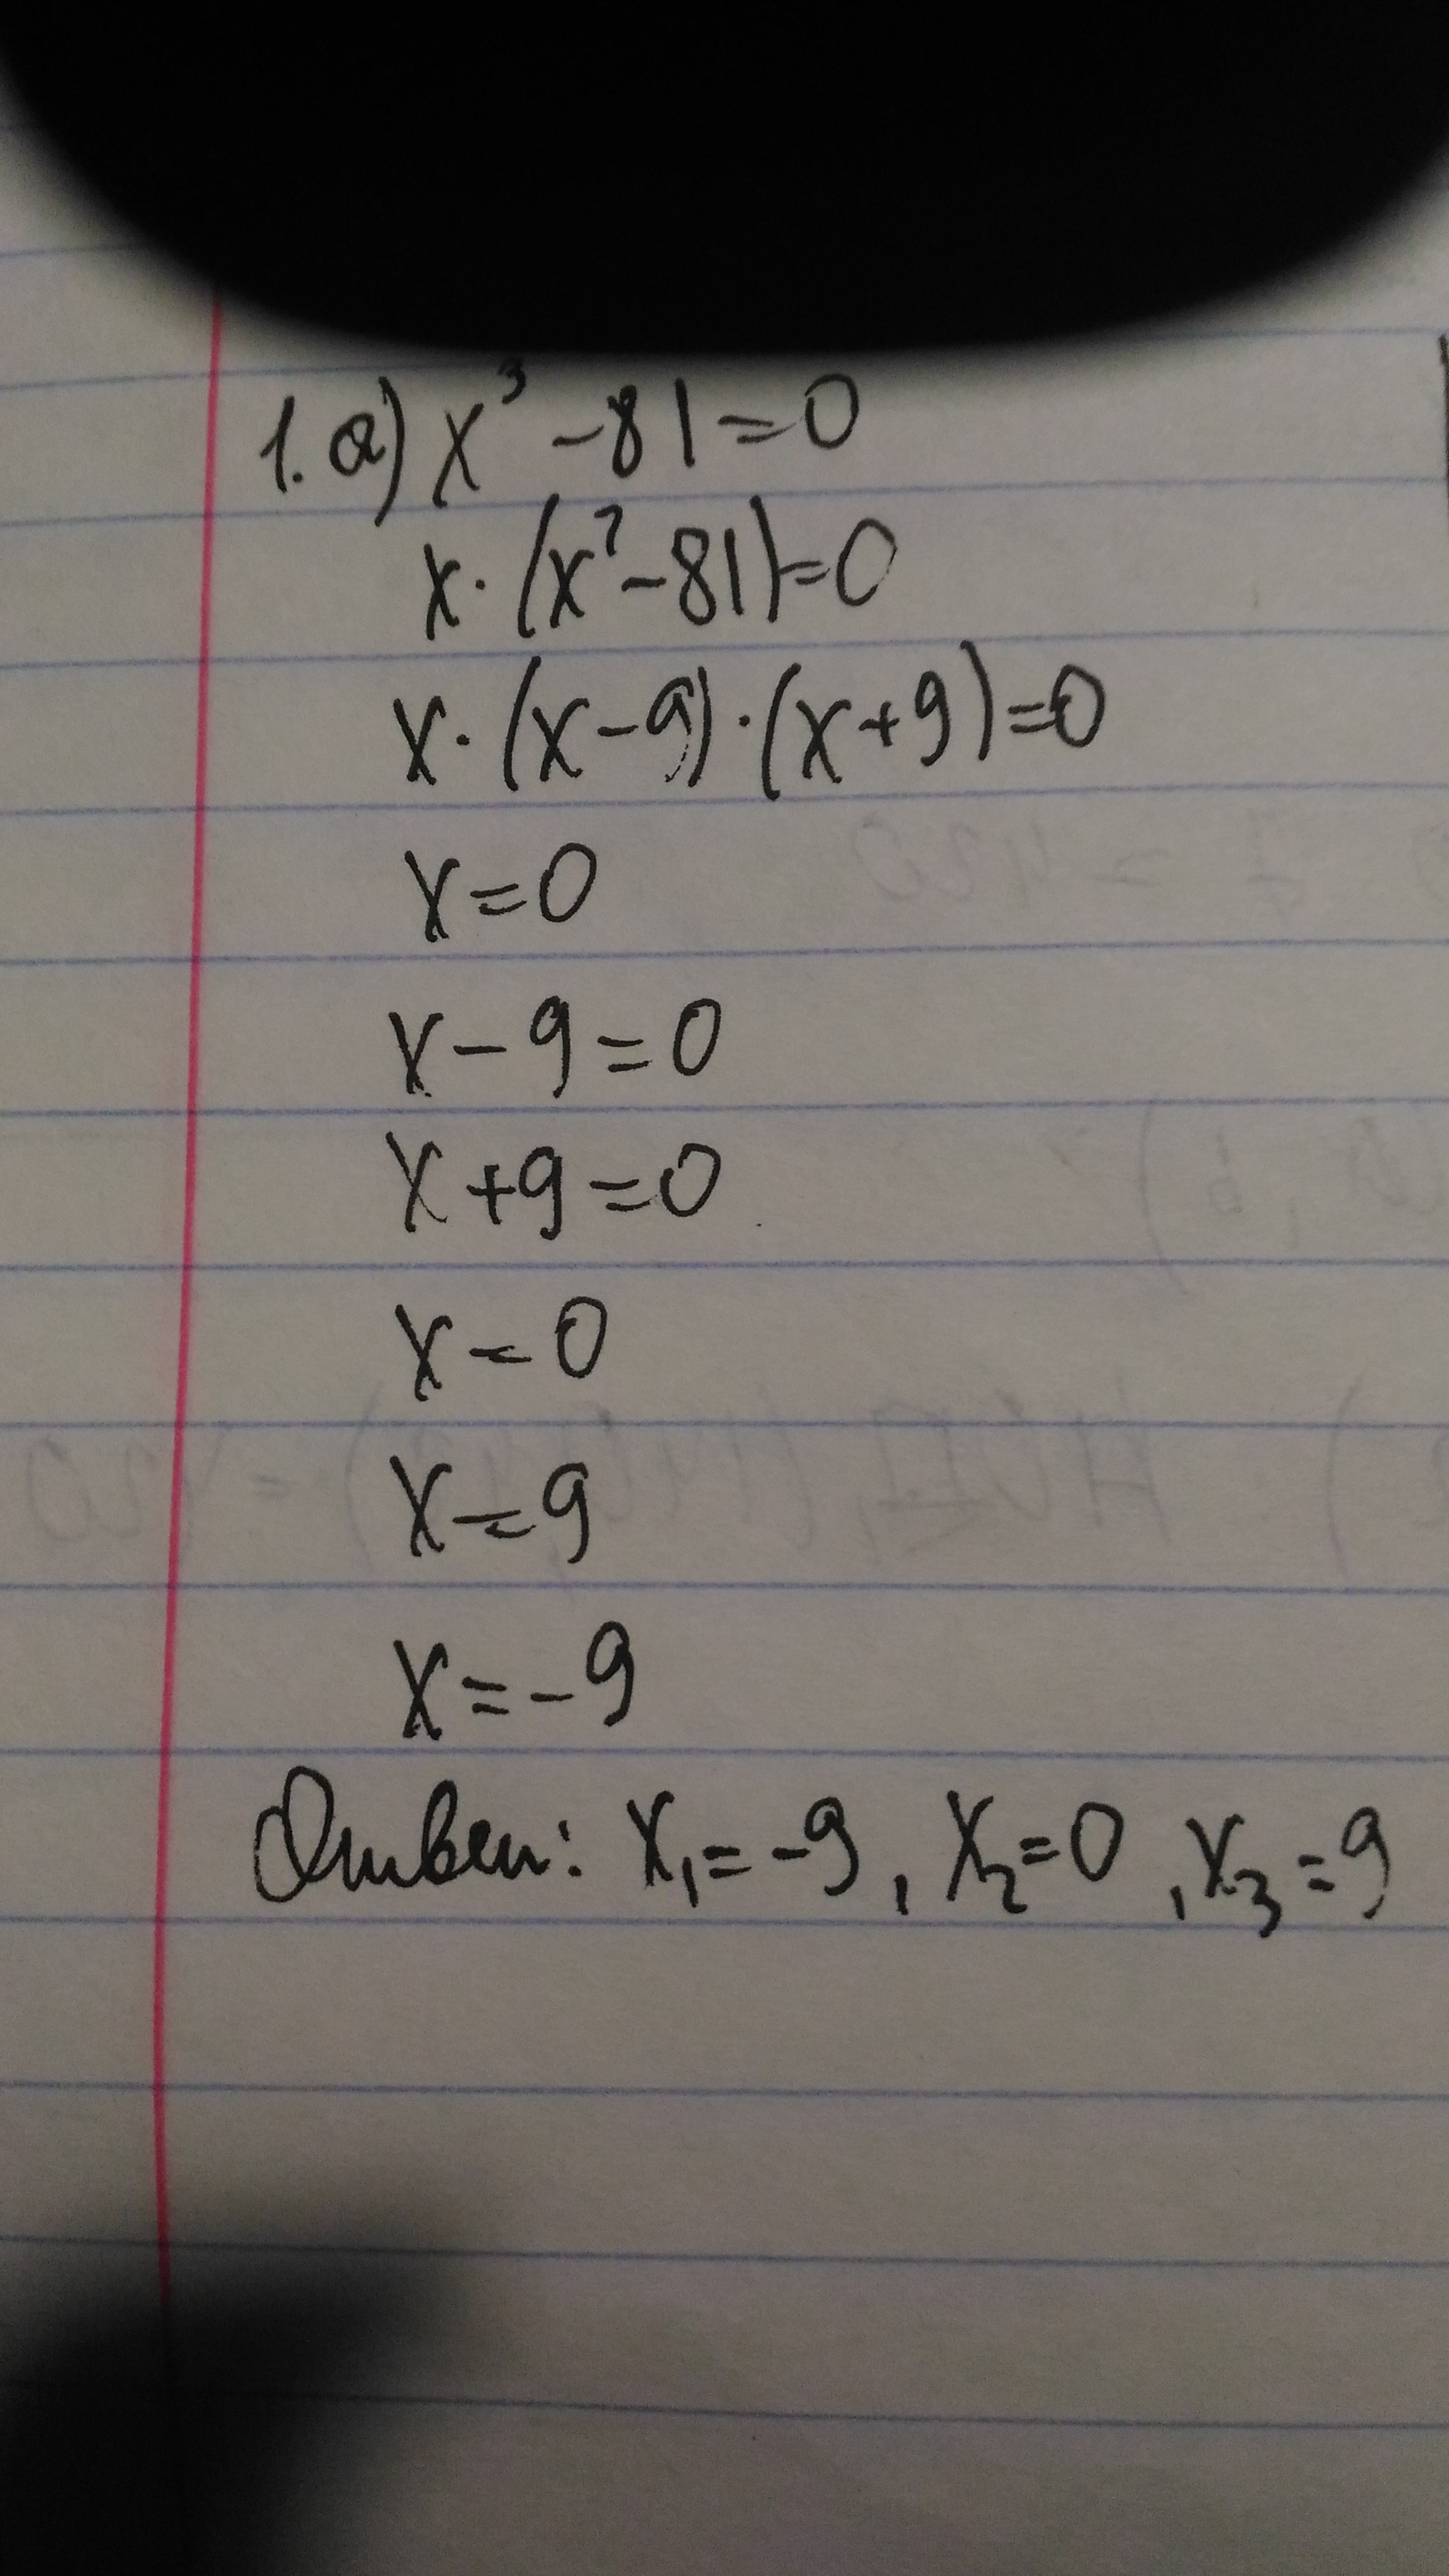 1. а) x³ -81=0
x·(x²-81)=0
x·(x-9)·(x+9)=0
x=0
x-9=0
x+9=0
x=0
x=9
x=-9
Ответ: x₁=-9, x₂=0, x₃=9